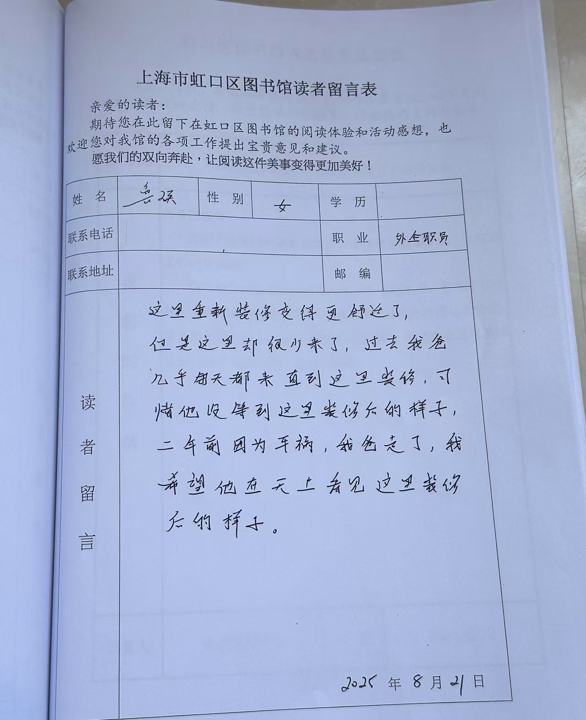 上海市虹口区图书馆读者留言表
亲爱的读者:
期待您在此留下在虹口区图书馆的阅读体验和活动感想,也
欢迎您对我馆的各项工作提出宝贵意见和建议。
愿我们的双向奔赴,让阅读这件美事变得更加美好!
姓 名 性 别 女 学 历
联系电话 职 业 外企职员
联系地址 邮 编
读者留言
这里重新装修变得更舒适了,
但是这里却很少来了,过去我爸
几乎每天都来直到这里装修,可
惜他没等到这里装修后的样子,
二年前因为车祸,我爸走了,我
希望他在天上看见这里装修
后的样子。
2025 年 8 月 21 日